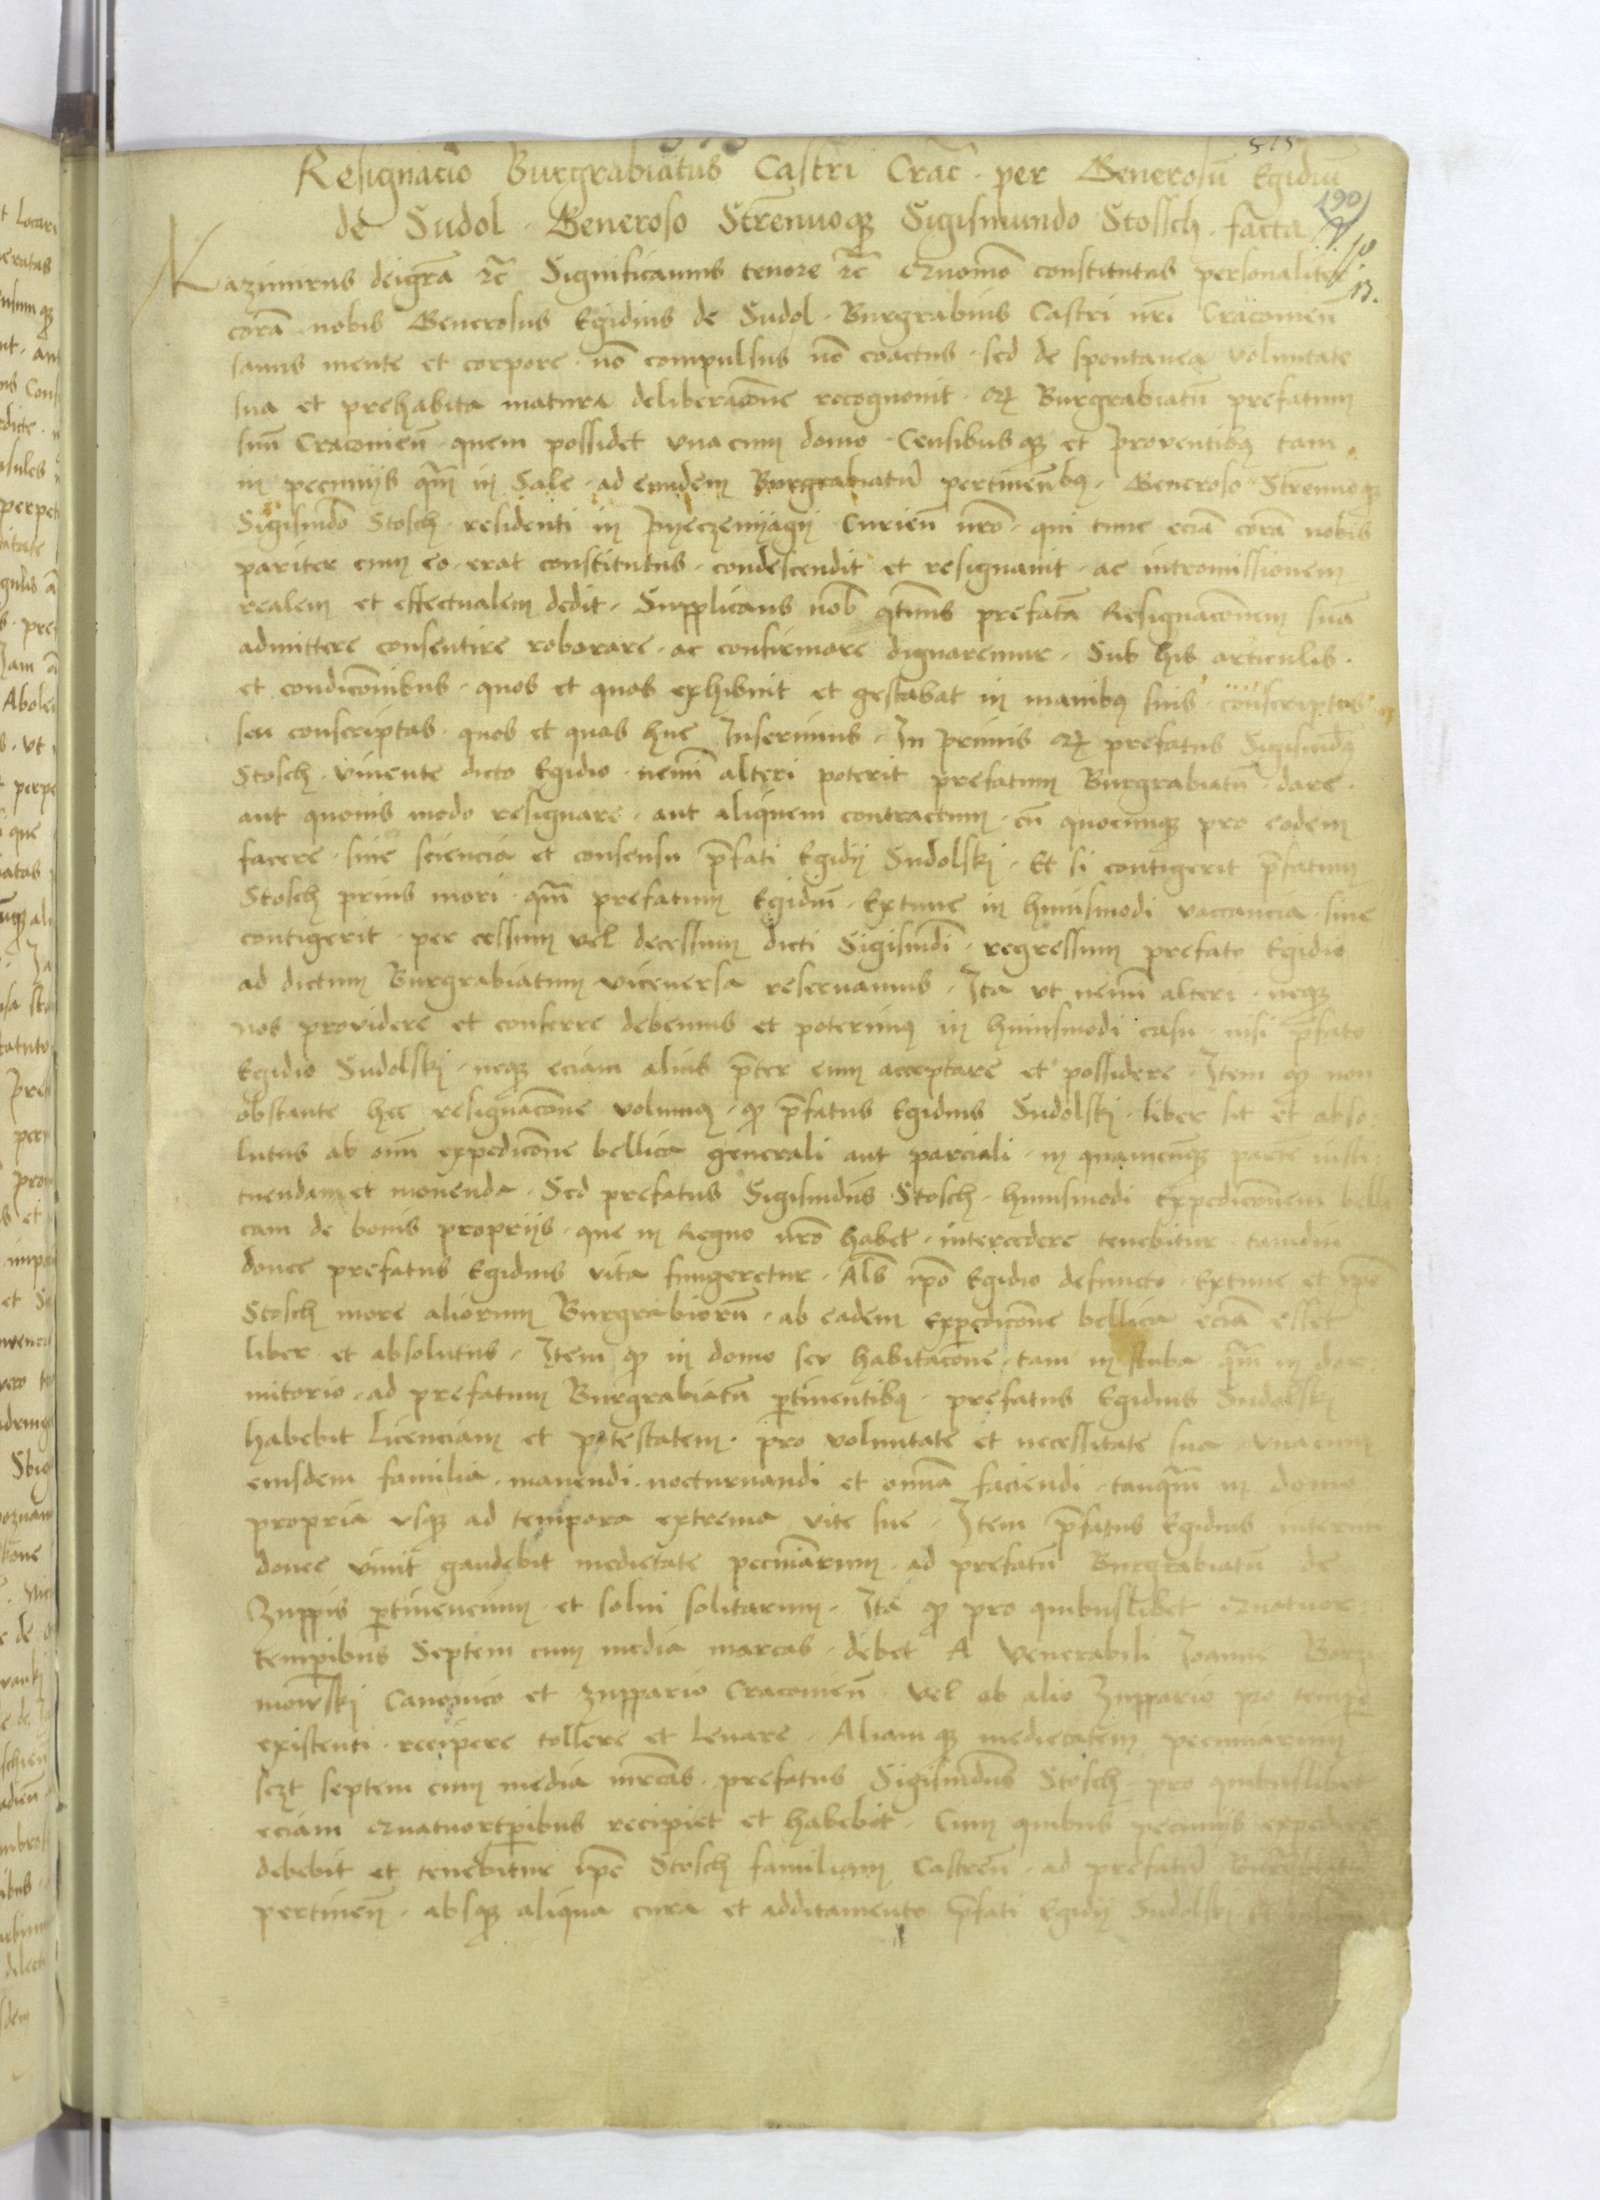 515
Resignacio Burgrabiatus Castri Crac̄ · per Generosū Egidiū
190
de Sudol · Generoso Strenuoqȝ Sigismundo Stossch · facta
Kazimirus deigr̄a ꝛc̄ Significamus tenore ꝛc̄ Quomō constitutus personaliter
corā nobis Generosus Egidius de Sudol · Burgrabius Castri nr̄i Cracouien̄
sanus mente et corpore · nō compulsus nō coactus · sed de spontanea voluntate
sua et prehabita matura deliberacōne recognouit · qꝫ Burgrabiatū prefatum
suū Cracouien̄ · quem possidet vna cum domo · Censibusqȝ et prouentibꝫ tam
in pecunijs qm̄ in Sale · ad eundem Burgrabiatū pertinen̄bꝫ · Generoso Strenuoqȝ
Sigismdo Stosch · residenti in Curien̄ nrō · qui tunc eciā corā nobis
pariter cum eo · erat constitutus · condescendit et resignauit · ac intromissionem
realem et effectualem dedit · Supplicans nob̄ qtin̄us prefatā Resignacōnem suā
admittere consentire roborare · ac confirmare dignaremur · Sub his articulis ·
et condicōnibus · quos et quas exhibuit et gestabat in manibꝫ suis · conscriptos
seu conscriptas · quos et quas huc Inserimus · In primis qꝫ prefatus Sigismdꝫ
Stosch · viuente dicto Egidio · nemi alteri poterit prefatum Burgrabiatū · dare ·
aut quouis modo resignare · aut aliquem contractum · cū quocunqȝ pro eodem
facere · sine sciencia et consensu p̄fati Egidij Sudolskj · Et si contigerit p̄fatum
Stosch prius mori · qm̄ prefatum Egidiū · Extunc in huiusmodi vaccancia · siue
contigerit · per cessum vel decessum dicti Sigismdi · regressum prefato Egidio
ad dictum Burgrabiatum viceuersa reseruamus · Ita vt nemi alteri · neqȝ
nos prouidere et conferre debemus et poterimꝫ in huiusmodi casu · nisi p̄fato
Egidio Sudolskj · neqȝ eciam alius p̄ter eum acceptare et possidere · Item qꝫ non
obstante hac resignacōne volumꝫ · qꝫ p̄fatus Egidius Sudolskj · liber sit et abso
lutus ab om̄i expedicōne bellica generali aut parciali · in quamcunqȝ partē insti
tuendam et mouenda · Sed prefatus Sigismdus Stosch · huiusmodi expedicōnem belli
cam de bonis proprijs · que in Regno nrō habet · intercedere tenebitur · tamdiu
donec prefatus Egidius vita fungeretur · Als̄ ip̄o Egidio defuncto · Extunc et ip̄e
Stosch more aliorum Burgrabiorū · ab eadem Expedicōne bellica eciā esset
liber et absolutus · Item qꝫ in domo seu habitacōne · tam in stuba qm̄ in dor
mitorio · ad prefatum Burgrabiatū p̄tinentibꝫ · prefatus Egidius Sudolskj
habebit licenciam et potestatem · pro voluntate et necessitate sua vnacum
eiusdem familia · manendi · nocturnandi et omnia faciendi · tanqm̄ in domo
propria vsqȝ ad tempora extrema vite sue · Item p̄fatus Egidius
donec viuit gaudebit medietate pecuniarum · ad prefatū Burgrabiatū de
Zuppis p̄tinencium · et solui solitarum · Ita qꝫ pro quibuslibet Quatuor
temp̄ibus Septem cum media marcas · debet A Venerabili Joanne Borzi
mowskj Canonico et zuppario Cracouien̄ · vel ab alio Zuppario pro temp̄e
existenti · recipere tollere et leuare · Aliamqȝ medietatem pecuniarum
sczt septem cum media mrcas · prefatus Sigismdus Stosch · pro quibuslibet
eciam Quatuortp̄ibus recipiet et habebit · Cum quibus pecunijs expedire
debebit et tenebitur ip̄e Stosch familiam Castren̄ · ad prefatū Burgrabiatū
pertinen̄ · absqȝ aliqua cura et additamento p̄fati Egidij Sudolskj